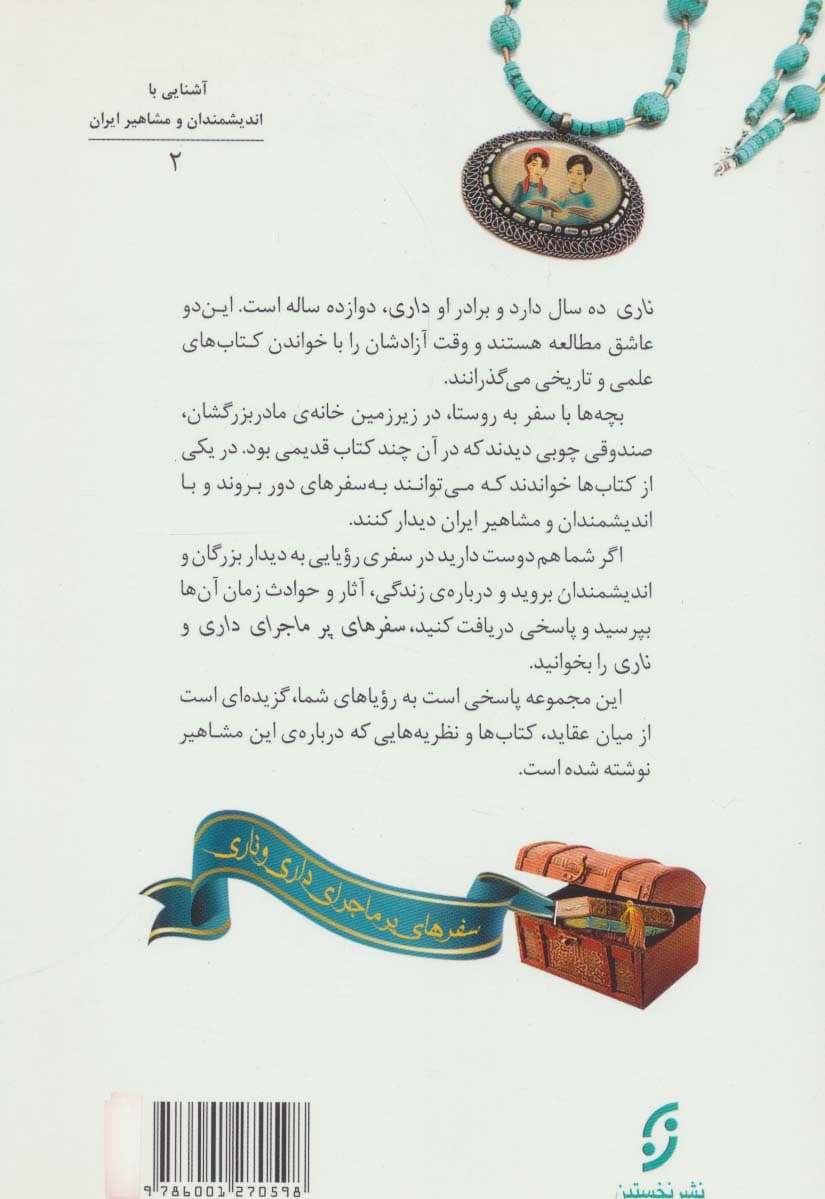 آشنایی با
اندیشمندان و مشاهیر ایران
۲
ناری ده سال دارد و برادر او داری، دوازده ساله است. این‌دو
عاشق مطالعه هستند و وقت آزادشان را با خواندن کتاب‌های
علمی و تاریخی می‌گذرانند.
بچه‌ها با سفر به روستا، در زیرزمین خانه‌ی مادربزرگشان،
صندوقی چوبی دیدند که در آن چند کتاب قدیمی بود. در یکی
از کتاب‌ها خواندند که می‌توانند به‌سفرهای دور بروند و با
اندیشمندان و مشاهیر ایران دیدار کنند.
اگر شما هم دوست دارید در سفری رؤیایی به دیدار بزرگان و
اندیشمندان بروید و درباره‌ی زندگی، آثار و حوادث زمان آن‌ها
بپرسید و پاسخی دریافت کنید، سفرهای پر ماجرای داری و
ناری را بخوانید.
این مجموعه پاسخی است به رؤیاهای شما، گزیده‌ای است
از میان عقاید، کتاب‌ها و نظریه‌هایی که درباره‌ی این مشاهیر
نوشته شده است.
سفرهای پرماجرای داری و ناری
9 786001 270598
نشر نخستین